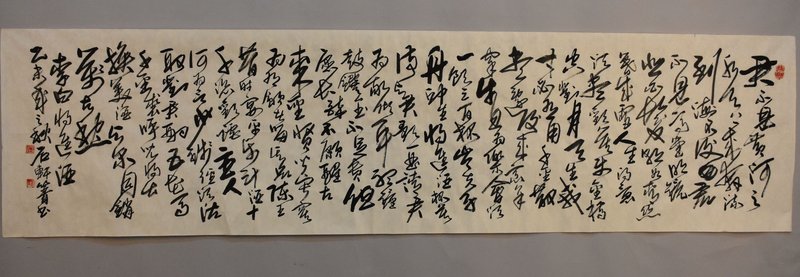 君不見黃河之
水天上來奔流
到海不復回君
不見高堂明鏡
悲白髮朝如青絲
暮成雪人生得意
須盡歡莫使金樽
空對月天生我
材必有用千金散
盡還復來烹羊
宰牛且為樂會須
一飲三百杯岑夫子
丹丘生將進酒杯莫
停與君歌一曲請君
為我傾耳聽鐘
鼓饌玉不足貴但
願長醉不願醒古
來聖賢皆寂寞
有飲者留其名陳王
昔時宴平樂斗酒十
千恣歡謔主人
何為言少錢徑須沽
取對君酌五花馬
千金裘呼兒將出
換美酒與爾同銷
萬古愁
李白將進酒
乙未 之秋石軒書